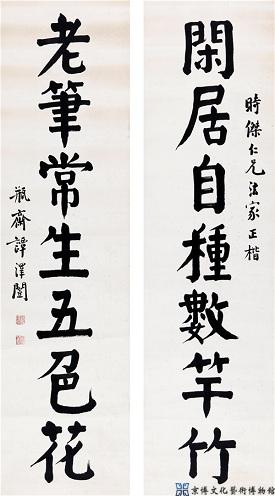 時傑仁兄法家正楷
閑居自種數竿竹
老筆常生五色花
瓶齋譚澤闓
京博文化藝術博物館